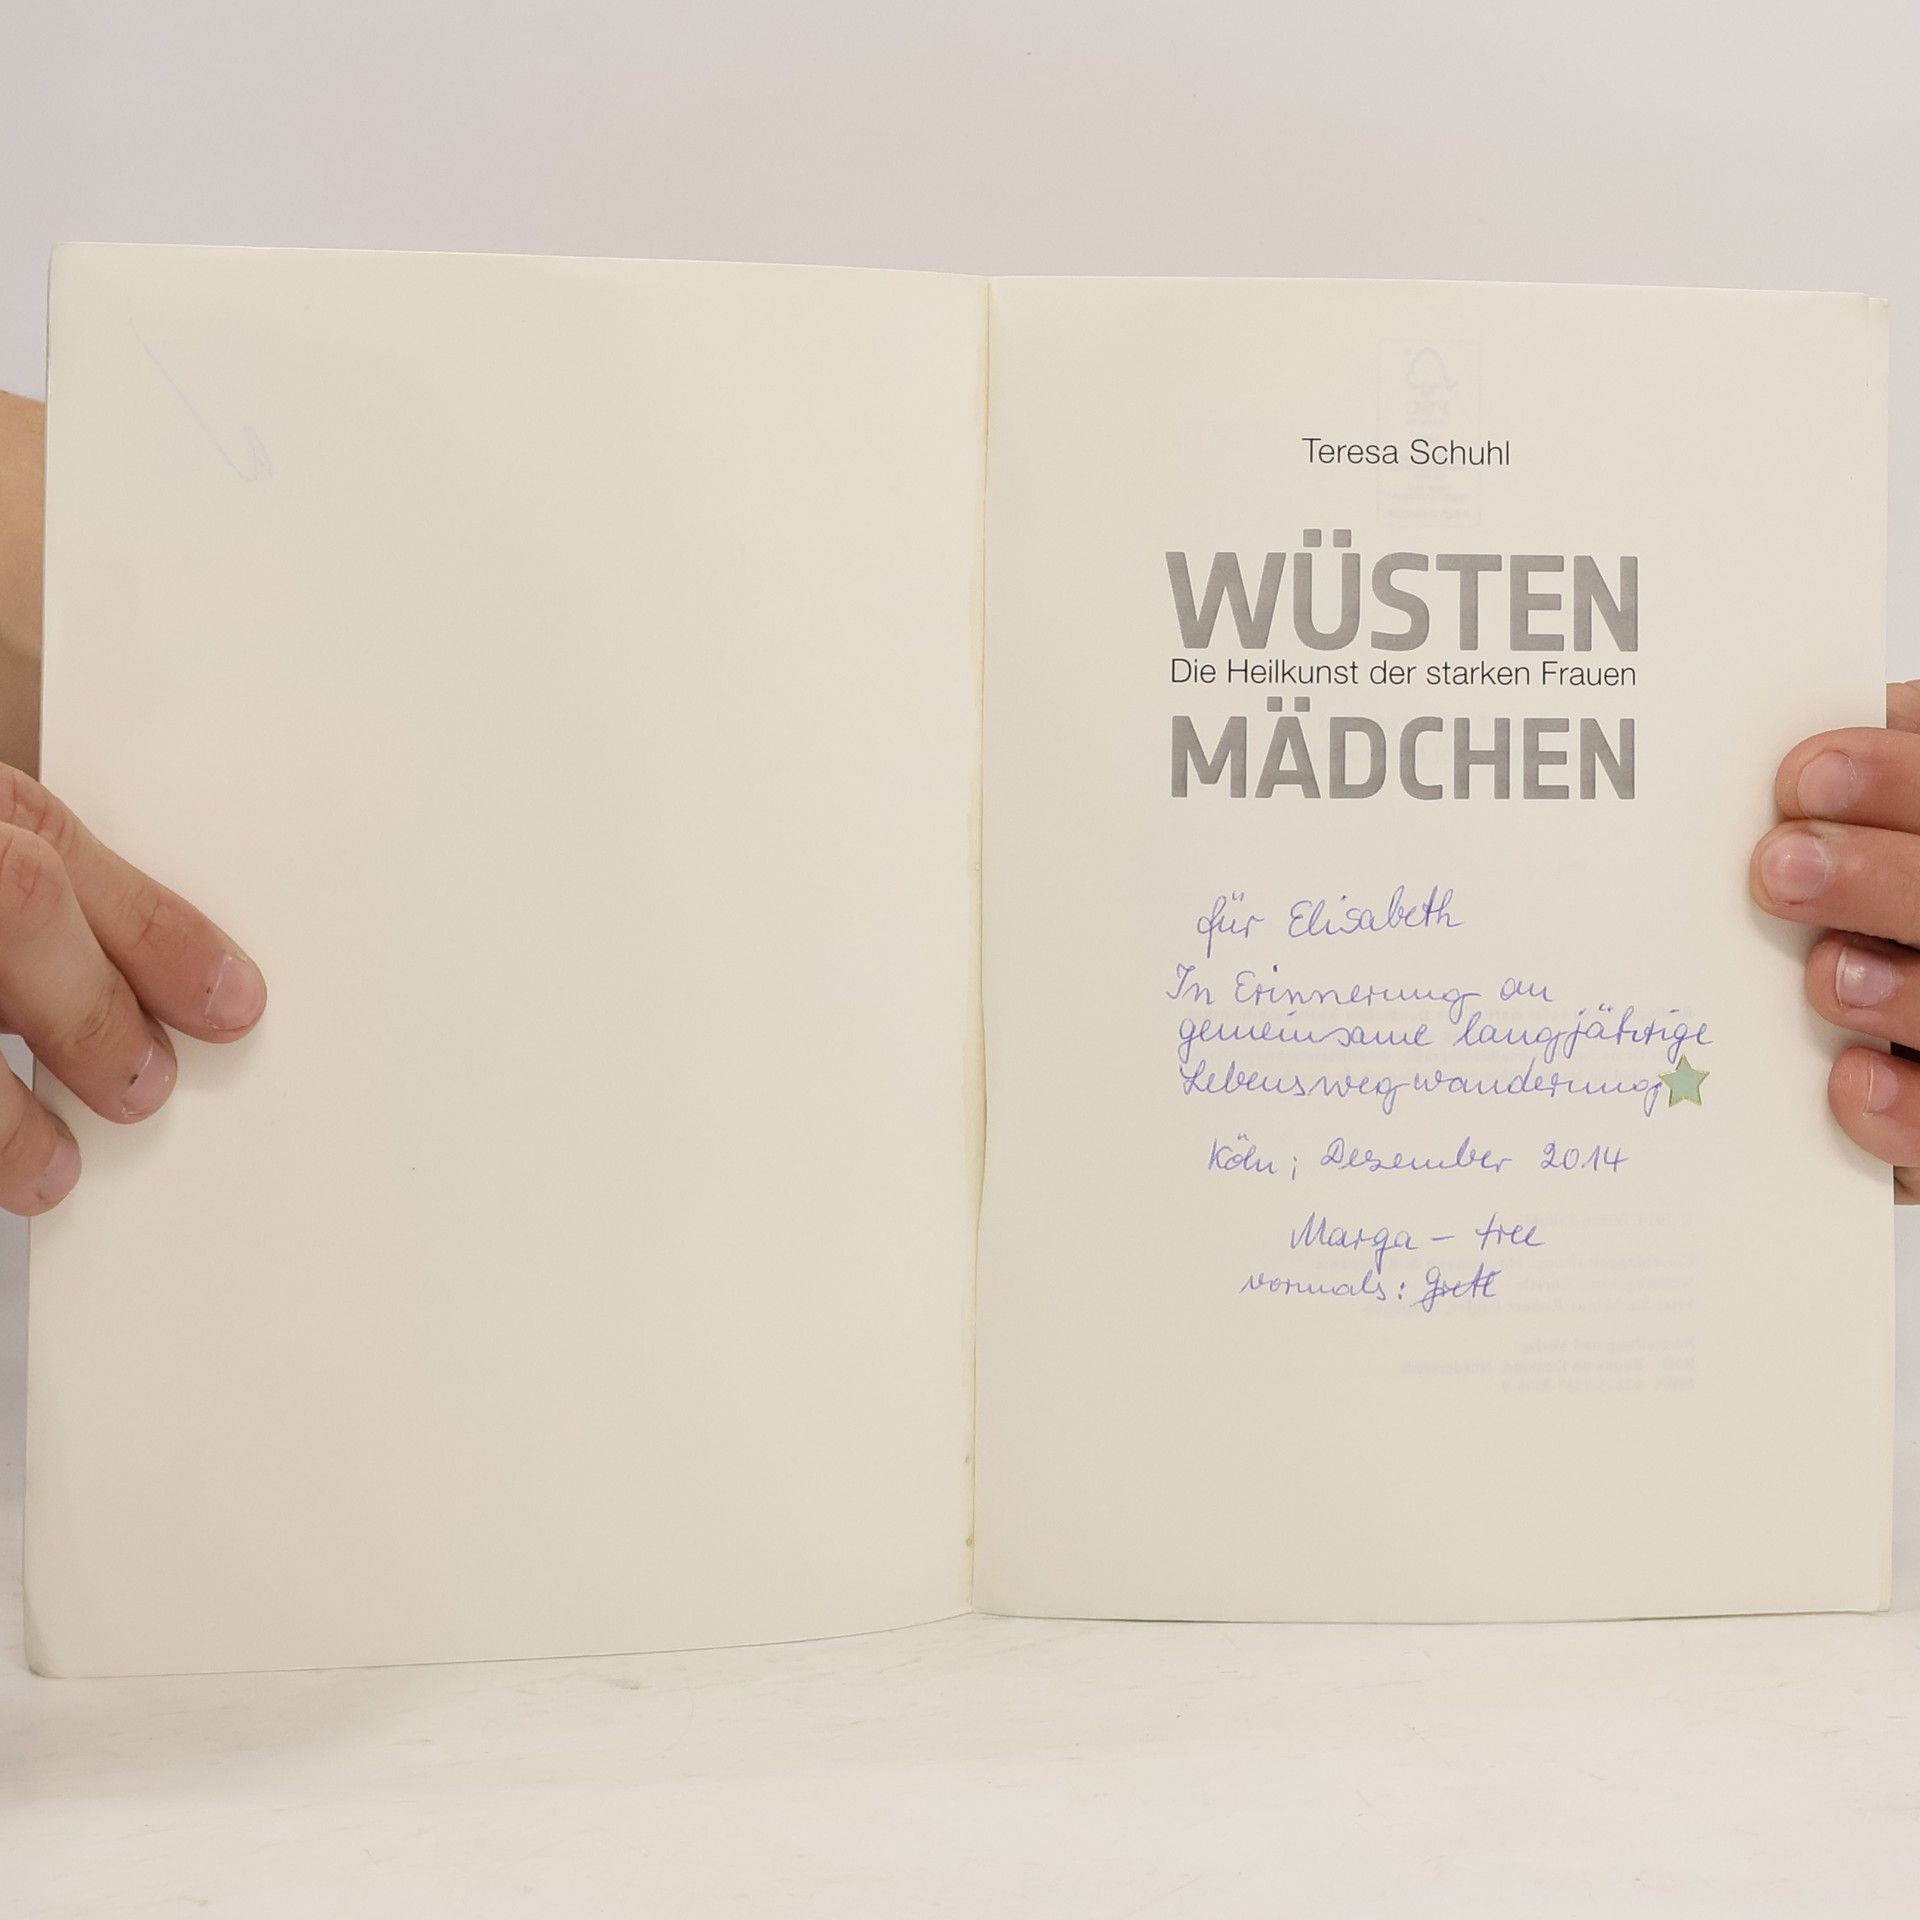 Teresa Schuhl
WÜSTEN
Die Heilkunst der starken Frauen
MÄDCHEN
für Elisabeth
In Erinnerung an
gemeinsame langjährige
Lebenswegwanderung
Köln; Dezember 2014
Marga - tree
vormals: Gretl